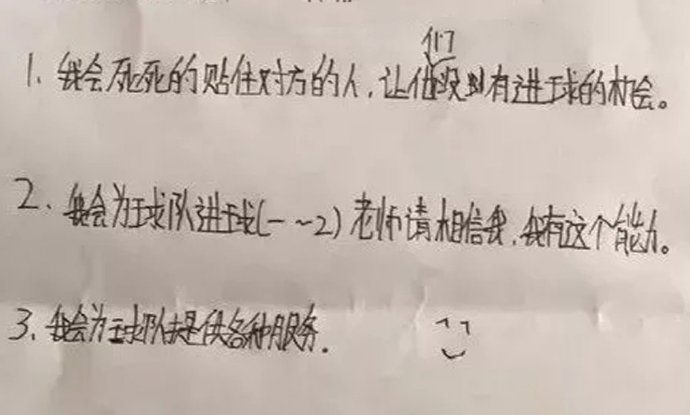 1. 我会死死的贴住对方的人，让他们没有进球的机会。
2、我会为球队进球(一~2)老师请相信我，我有这个能力。
3、我会为球队提供各种服务.